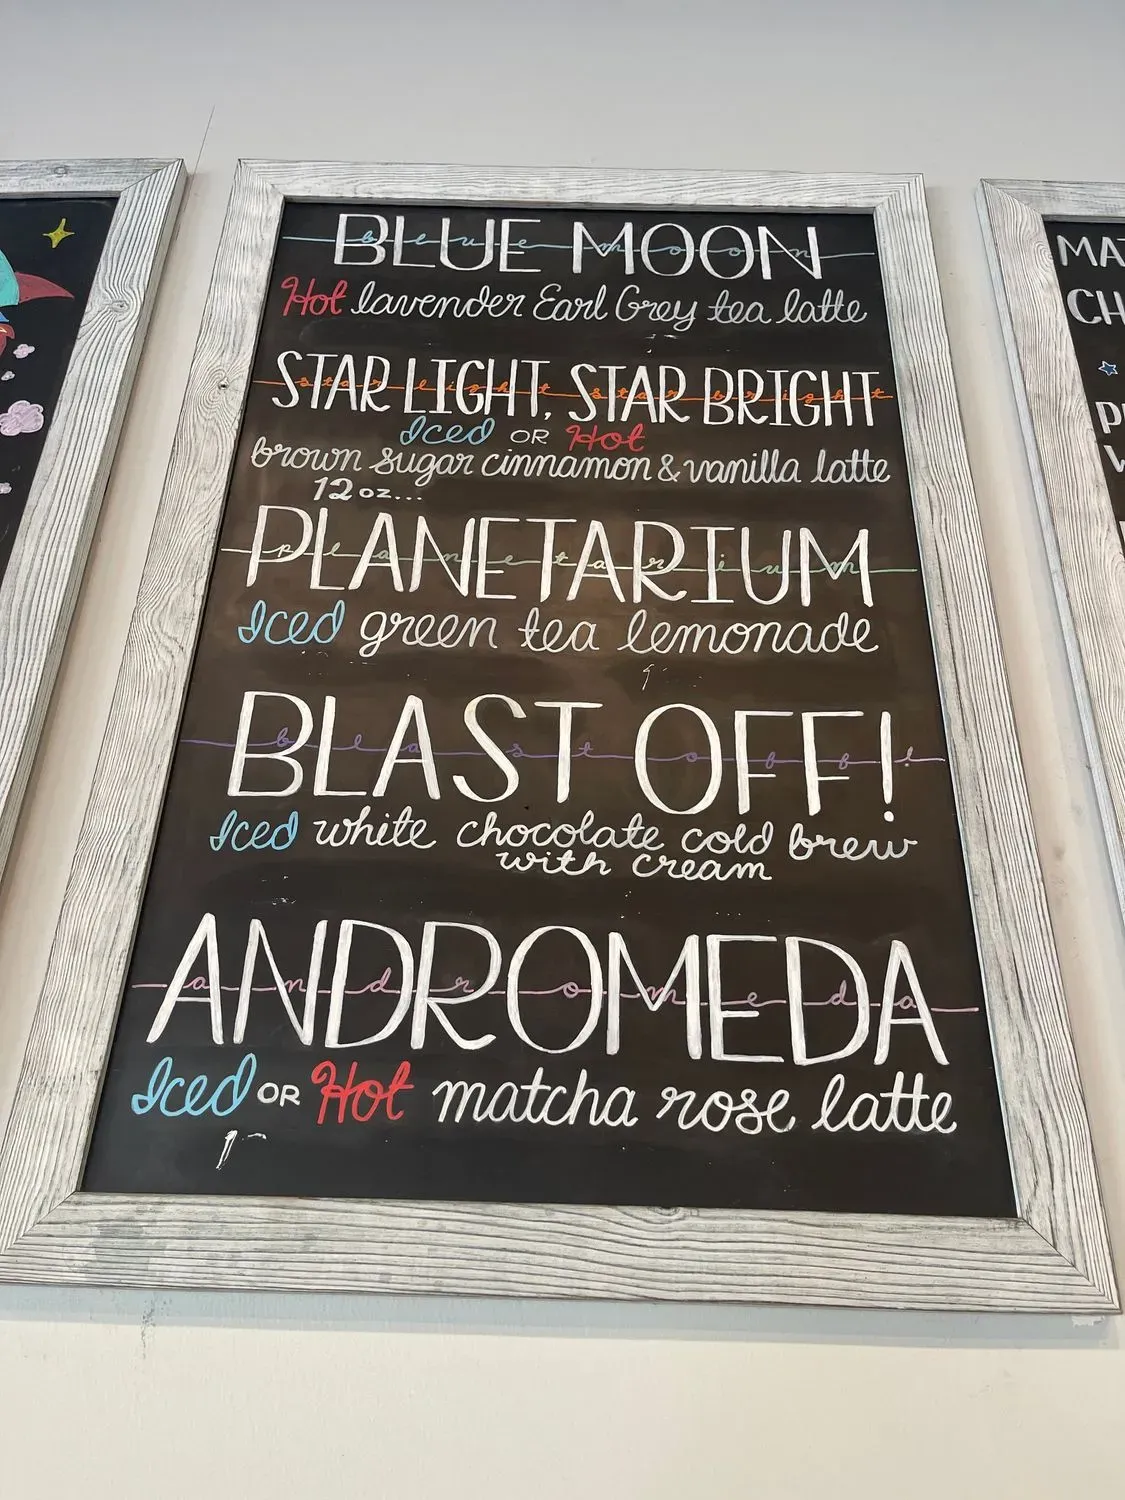 BLUE MOON
blue moon
Hot lavender Earl Grey tea latte
STAR LIGHT, STAR BRIGHT
star light star bright
Iced OR Hot
brown sugar cinnamon & vanilla latte
12 oz...
PLANETARIUM
planetarium
Iced green tea lemonade
BLAST OFF!
blast off!
Iced white chocolate cold brew
with cream
ANDROMEDA
andromeda
Iced OR Hot matcha rose latte
MA
CH